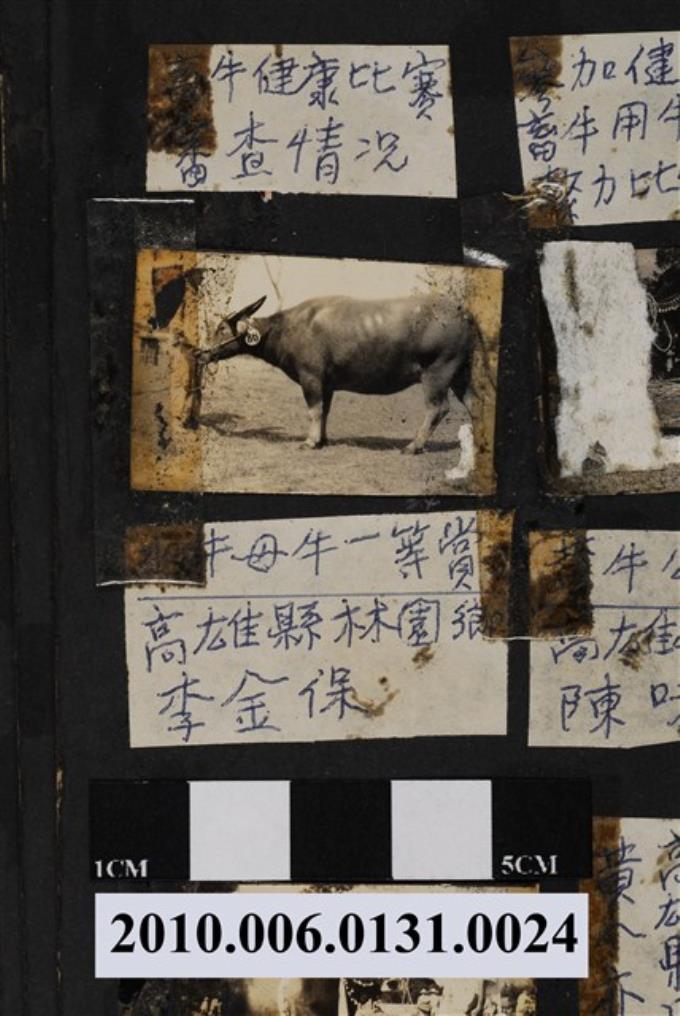 畜牛健康比賽
審查情況
參加健
畜牛用牛
力比
80
牛母牛一等賞
高雄縣林園鄉
李金保
牛
高雄
陳
1CM
5CM
2010.006.0131.0024
高雄縣